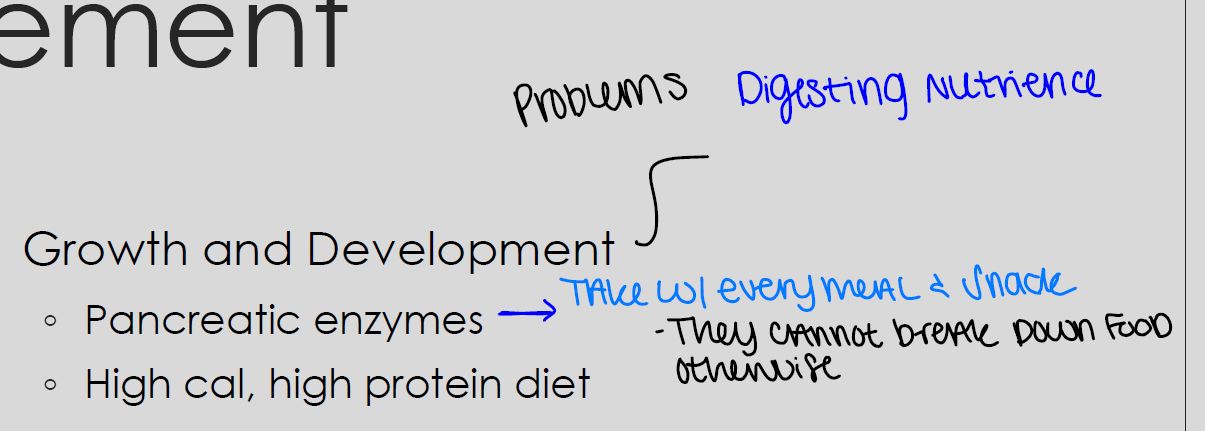 ement
Problems Digesting Nutrience
Growth and Development
◦ Pancreatic enzymes → TAke w/ every meAL & Snack
- They cAnnot breAk Down FooD
otherwise
◦ High cal, high protein diet